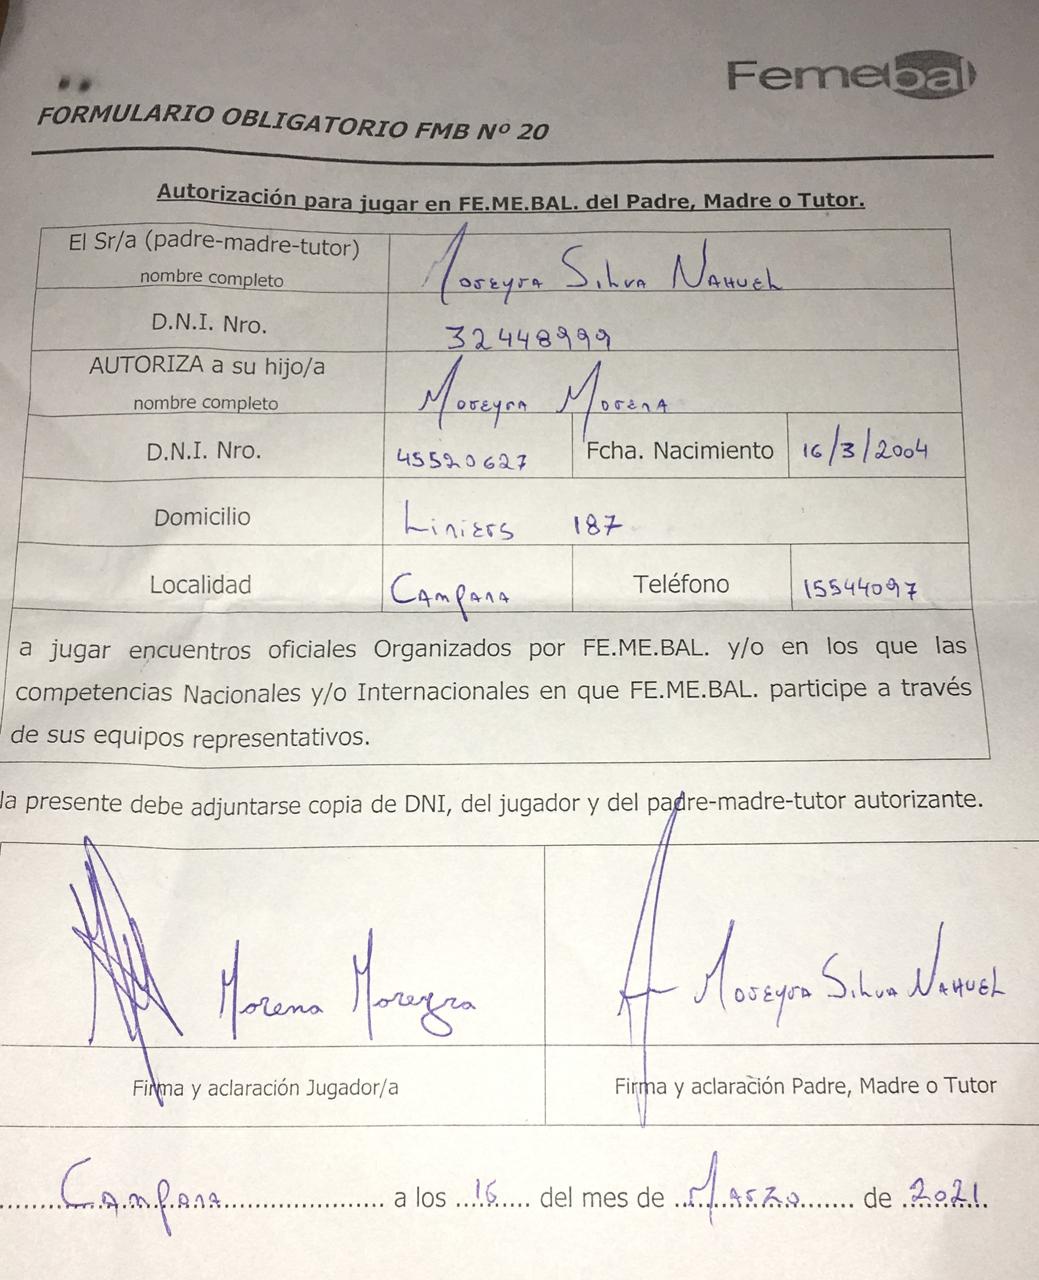 Femebal
FORMULARIO OBLIGATORIO FMB Nº 20
Autorización para jugar en FE.ME.BAL. del Padre, Madre o Tutor.
El Sr/a (padre-madre-tutor)
nombre completo
Moreyra Silva Nahuel
D.N.I. Nro.
32448999
AUTORIZA a su hijo/a
nombre completo
Moreyra Morena
D.N.I. Nro.
45520627
Fcha. Nacimiento
16/3/2004
Domicilio
Liniers 187
Localidad
Campana
Teléfono
15544097
a jugar encuentros oficiales Organizados por FE.ME.BAL. y/o en los que las
competencias Nacionales y/o Internacionales en que FE.ME.BAL. participe a través
de sus equipos representativos.
la presente debe adjuntarse copia de DNI, del jugador y del padre-madre-tutor autorizante.
Morena Moreyra
Moreyra Silva Nahuel
Firma y aclaración Jugador/a
Firma y aclaración Padre, Madre o Tutor
Campana a los 16 del mes de Marzo de 2021